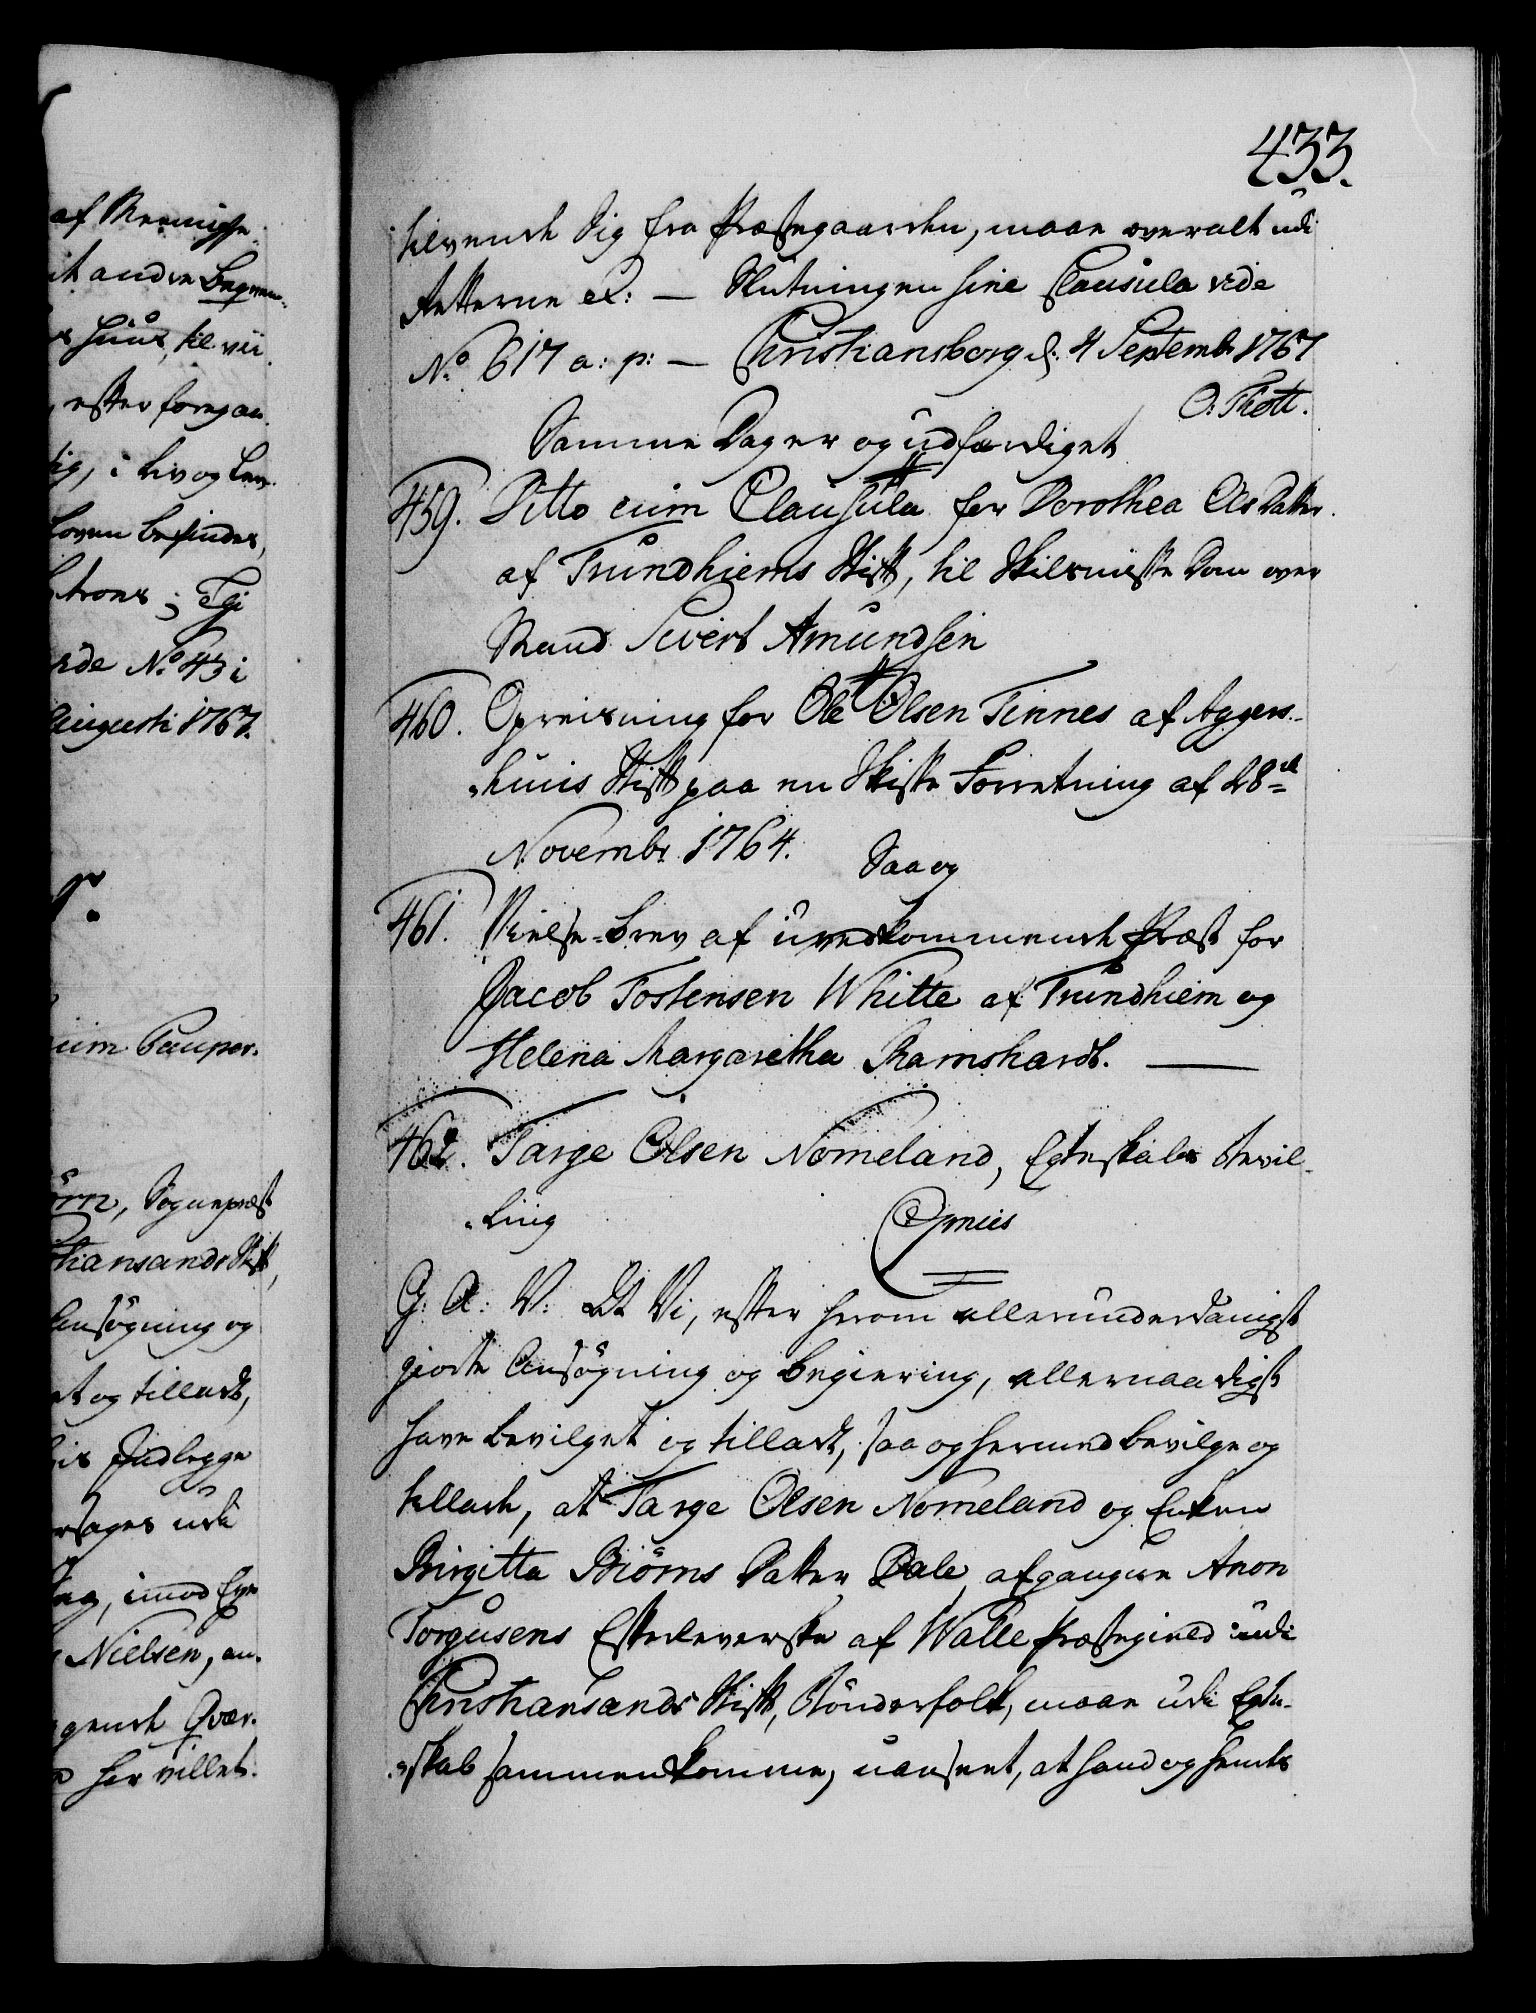 af Menniske,
it andre beqvem-
s Huus, til vii
, efter foregaa-
tig, i Liv og Lev-
Loven befindes,
Atrones; Thi
vide No 43 i
Augusti 1767.
cum Pauper.
örn, Sognepræst
stiansands Stift,
Ansøgning og
et og tilladt,
his Indlegge
ersages udi
ng, imod Ege
Nielsen, an-
gende Qvær-
her villet.
433.
tilvendt Sig fra Præstegaarden, maae overalt udi
Retterne etc: — Slutningen sine Clausula vide
No 617 a: p: — Christiansborg d: 4 Septembr 1767
O: Thott.
Samme Dag er og udfærdiget
459. Ditto cum Clausula for Dorothea Ols Datter
af Trundhiems Stift, til Skilsmisse Dom over
Mand Sivert Amundsen
460. Opreisning for Ole Olsen Tinnes af Aggers-
huus Stift paa en Skifte Forretning af 28de
Novembr 1764.
Saa og
461. Vielse-brev af uvedkommende Præst for
Jacob Tostensen Whitte af Trundhiem og
Helena Margaretha Ramshardt. —
462. Targe Olsen Nomeland, Egteskabs Bevil-
ling
Gratis
G: A: V: At Vi, efter herom allerunderdanigst
giorte Ansøgning og begiering, allernaadigst
have bevilget og tilladt, saa og hermed bevilge og
tillade, at Targe Olsen Nomeland og Enken
Birgitta Biörns Datter Dale, afgangne Anon
Torgusens Efterleverske af Walle Præstegield udi
Christiansands Stift, Bønderfolk, maae udi Egte-
skab sammenkomme, uanseet, at hand og hendes